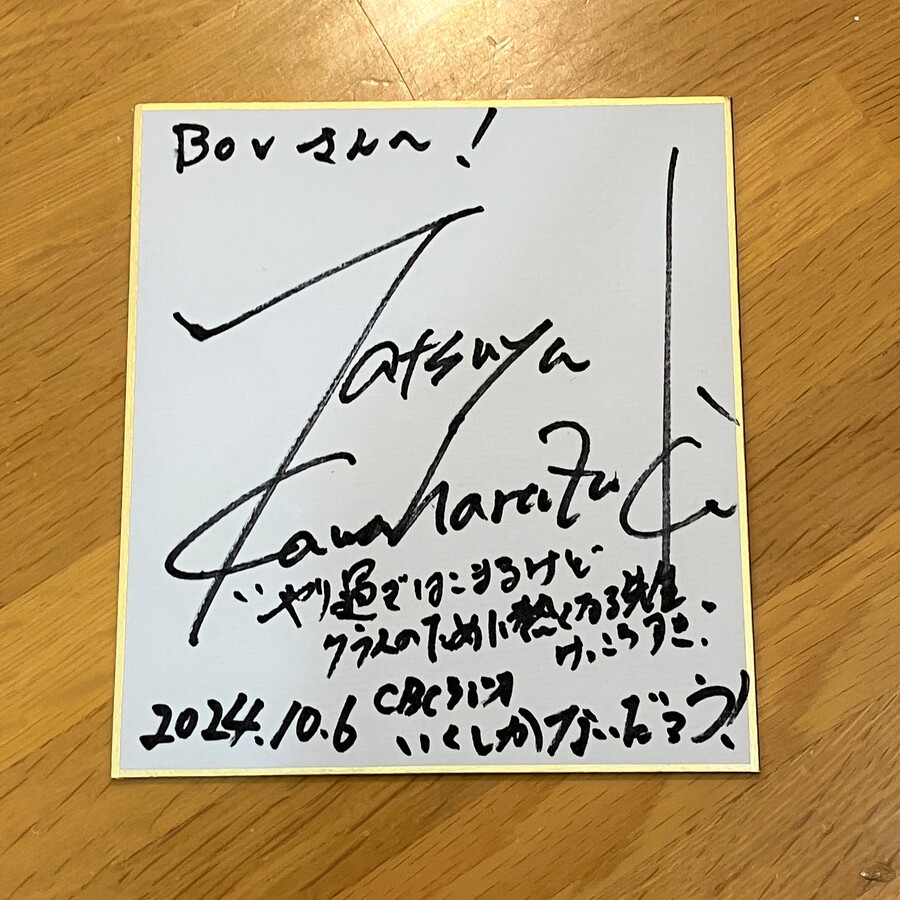 Bovさんへ!
Tatsuya
Kawaharazuki
"やり過ぎはこまるけど
クラスのために熱くなる先生
けっこうすき"
2024.10.6 CBCラジオ
いくしかないだろう!